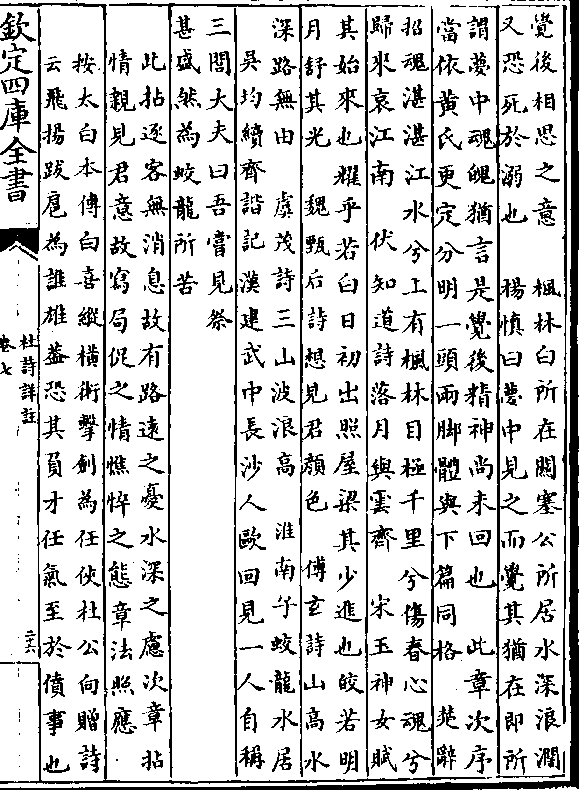 覺後相思之意　楓林白所在關塞公所居水深浪濶
又恐死於溺也　楊慎曰夢中見之而覺其猶在即所
謂夢中魂魄猶言是覺後精神尚未回也　此章次序
當依黄氏更定分明一頭兩脚體與下篇同格　楚辭
招魂湛湛江水兮上有楓林目極千里兮傷春心魂兮
歸來哀江南　伏知道詩落月與雲齊　宋玉神女賦
其始來也耀乎若白日初出照屋梁其少進也皎若明
月舒其光　魏甄后詩想見君顔色　傅玄詩山高水
深路無由　虞茂詩三山波浪高　淮南子蛟龍水居
吳均續齊諧記漢建武中長沙人歐回見一人自稱
三閭大夫曰吾嘗見祭
甚盛然為蛟龍所苦
此拈逐客無消息故有路遠之憂水深之慮次章拈
情親見君意故寫局促之情憔悴之態章法照應
按太白本傳白喜縱橫術擊劍為任俠杜公向贈詩
云飛揚跋扈為誰雄葢恐其負才任氣至於僨事也
欽定四庫全書
杜詩詳註
卷七
二六